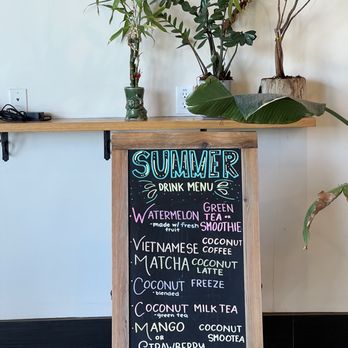 SUMMER
DRINK MENU
WATERMELON GREEN TEA OR SMOOTHIE
-made w/ fresh fruit
VIETNAMESE COCONUT COFFEE
MATCHA COCONUT LATTE
COCONUT FREEZE
-blended
COCONUT MILK TEA
-green tea
MANGO OR STRAWBERRY COCONUT SMOOTEA